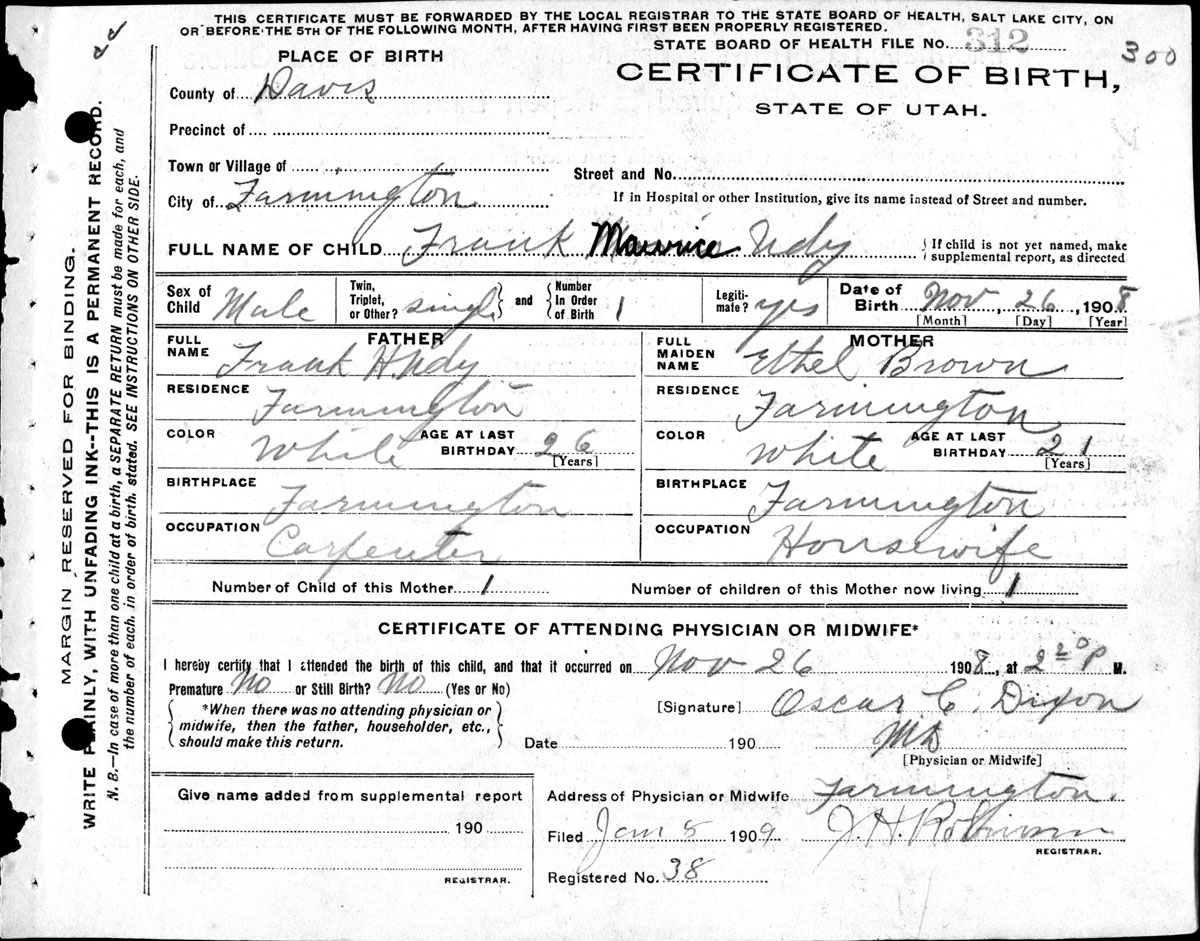 THIS CERTIFICATE MUST BE FORWARDED BY THE LOCAL REGISTRAR TO THE STATE BOARD OF HEALTH, SALT LAKE CITY, ON
OR BEFORE THE 5TH OF THE FOLLOWING MONTH, AFTER HAVING FIRST BEEN PROPERLY REGISTERED.
STATE BOARD OF HEALTH FILE No. 312
300
PLACE OF BIRTH
CERTIFICATE OF BIRTH,
STATE OF UTAH.
County of Davis
Precinct of
Town or Village of
Street and No.
City of Farmington
If in Hospital or other Institution, give its name instead of Street and number.
FULL NAME OF CHILD Frank Maurice Udy
If child is not yet named, make
supplemental report, as directed
Sex of Child Male
Twin, Triplet, or Other? single
and
Number In Order of Birth 1
Legiti-mate? yes
Date of Birth Nov, 26, 1908
[Month] [Day] [Year]
FATHER
FULL NAME Frank H. Udy
RESIDENCE Farmington
COLOR White AGE AT LAST BIRTHDAY 26
[Years]
BIRTHPLACE Farmington
OCCUPATION Carpenter
MOTHER
FULL MAIDEN NAME Ethel Brown
RESIDENCE Farmington
COLOR White AGE AT LAST BIRTHDAY 21
[Years]
BIRTHPLACE Farmington
OCCUPATION Housewife
Number of Child of this Mother 1
Number of children of this Mother now living 1
CERTIFICATE OF ATTENDING PHYSICIAN OR MIDWIFE*
I hereby certify that I attended the birth of this child, and that it occurred on Nov 26 1908, at 2 20 P M.
Premature No or Still Birth? No (Yes or No)
*When there was no attending physician or
midwife, then the father, householder, etc.,
should make this return.
[Signature] Oscar C. Dixon
MD
Date 190
[Physician or Midwife]
Give name added from supplemental report
190
REGISTRAR.
Address of Physician or Midwife Farmington.
Filed Jan 5 1909 J. H. Robinson
REGISTRAR.
Registered No. 38
MARGIN RESERVED FOR BINDING.
WRITE PLAINLY, WITH UNFADING INK--THIS IS A PERMANENT RECORD.
N. B.—In case of more than one child at a birth, a SEPARATE RETURN must be made for each, and
the number of each, in order of birth, stated. SEE INSTRUCTIONS ON OTHER SIDE.